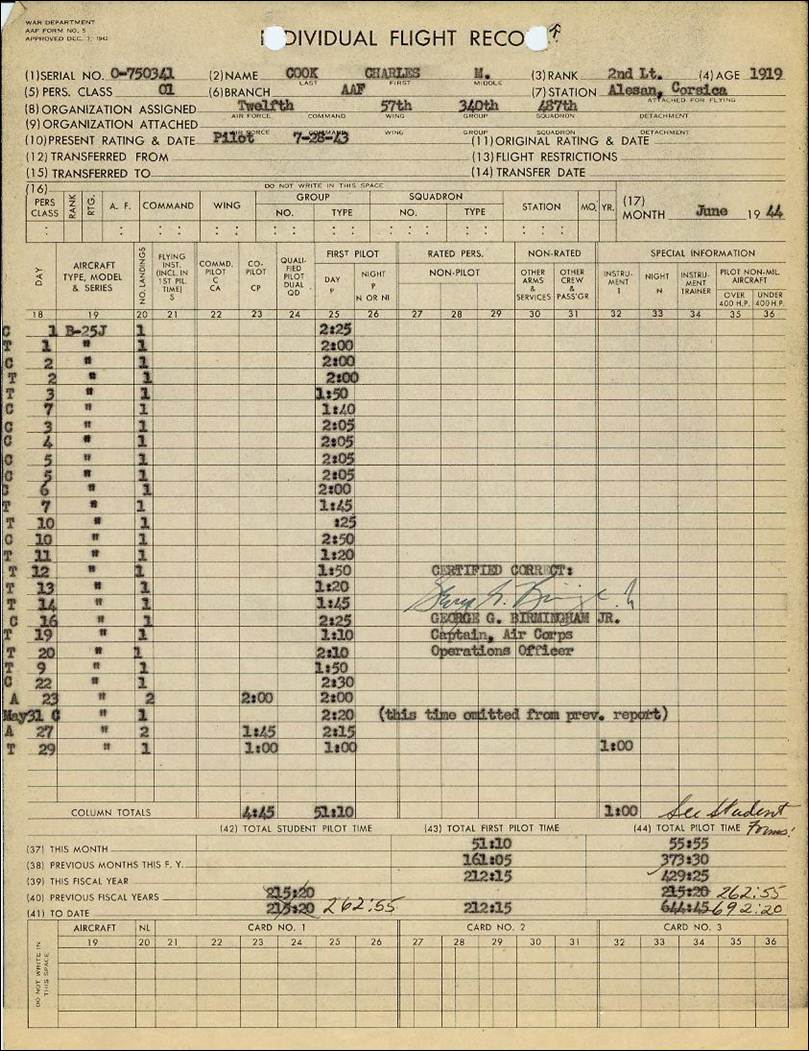 WAR DEPARTMENT
AAF FORM NO. 5
APPROVED DEC. 7, 1942
INDIVIDUAL FLIGHT RECORD
(1)SERIAL NO. O-750341 (2)NAME COOK CHARLES M. (3)RANK 2nd Lt. (4)AGE 1919
LAST FIRST MIDDLE
(5)PERS. CLASS 01 (6)BRANCH AAF (7)STATION Alesan, Corsica
(8)ORGANIZATION ASSIGNED Twelfth 57th 340th 487th ATTACHED FOR FLYING
AIR FORCE COMMAND WING GROUP SQUADRON DETACHMENT
(9)ORGANIZATION ATTACHED
FORCE COMMAND WING GROUP SQUADRON DETACHMENT
(10)PRESENT RATING & DATE Pilot 7-28-43 (11)ORIGINAL RATING & DATE
(12)TRANSFERRED FROM (13)FLIGHT RESTRICTIONS
(15)TRANSFERRED TO (14)TRANSFER DATE
(16) DO NOT WRITE IN THIS SPACE
PERS CLASS RANK RTG. A. F. COMMAND WING GROUP NO. TYPE SQUADRON NO. TYPE STATION MO. YR. (17) MONTH June 1944
DAY AIRCRAFT TYPE, MODEL & SERIES NO. LANDINGS FLYING INST. (INCL. IN 1ST PIL. TIME) S COMMD. PILOT C CA CO-PILOT CP QUALI-FIED PILOT DUAL QD FIRST PILOT DAY P NIGHT P N OR NI RATED PERS. NON-PILOT NON-RATED OTHER ARMS & SERVICES OTHER CREW & PASS'GR SPECIAL INFORMATION INSTRU-MENT I NIGHT N INSTRU-MENT TRAINER PILOT NON-MIL. AIRCRAFT OVER 400 H.P. UNDER 400 H.P.
18 19 20 21 22 23 24 25 26 27 28 29 30 31 32 33 34 35 36
C 1 B-25J 1 2:25
T 1 " 1 2:00
C 2 " 1 2:00
T 2 " 1 2:00
T 3 " 1 1:50
C 7 " 1 1:40
C 3 " 1 2:05
C 4 " 1 2:05
C 5 " 1 2:05
C 5 " 1 2:05
6 " 1 2:00
T 7 " 1 1:45
T 10 " 1 :25
C 10 " 1 2:50
T 11 " 1 1:20
T 12 " 1 1:50 CERTIFIED CORRECT:
T 13 " 1 1:20
T 14 " 1 1:45
C 16 " 1 2:25 GEORGE G. BIRMINGHAM JR.
T 19 " 1 1:10 Captain, Air Corps
T 20 " 1 2:10 Operations Officer
T 9 " 1 1:50
C 22 " 1 2:30
A 23 " 2 2:00 2:00
May31 C " 1 2:20 (this time omitted from prev. report)
A 27 " 2 1:45 2:15
T 29 " 1 1:00 1:00 1:00
COLUMN TOTALS 4:45 51:10 1:00 See Student Forms!
(42) TOTAL STUDENT PILOT TIME (43) TOTAL FIRST PILOT TIME (44) TOTAL PILOT TIME
(37) THIS MONTH 51:10 55:55
(38) PREVIOUS MONTHS THIS F. Y. 161:05 373:30
(39) THIS FISCAL YEAR 212:15 429:25
(40) PREVIOUS FISCAL YEARS 215:20 215:20 262:55
(41) TO DATE 215:20 262:55 212:15 644:45 692:20
AIRCRAFT NL CARD NO. 1 CARD NO. 2 CARD NO. 3
19 20 21 22 23 24 25 26 27 28 29 30 31 32 33 34 35 36
DO NOT WRITE IN THIS SPACE